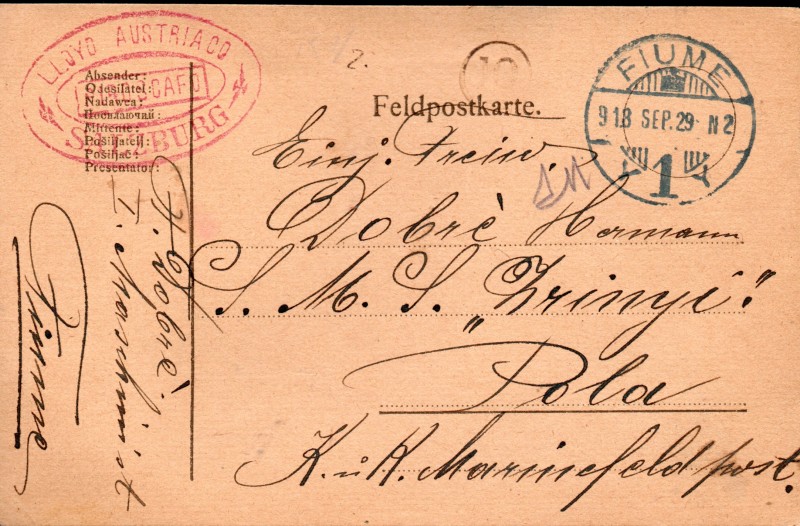 LLOYD AUSTRIACO
PIROSCAFO
SALZBURG
Absender:
Odesílatel:
Nadawca:
Посилаючий:
Mittente:
Pošiljatelj:
Pošiljač:
Presentator:
2.
10
Feldpostkarte.
FIUME
918 SEP.29 · N2
1
Einj. Freiw.
Dobrè Hermann
S. M. S. „Zrinyi"
Pola
K. u K. Marinefeldpost.
F. Dobrè
I. Maschinist
Fiume